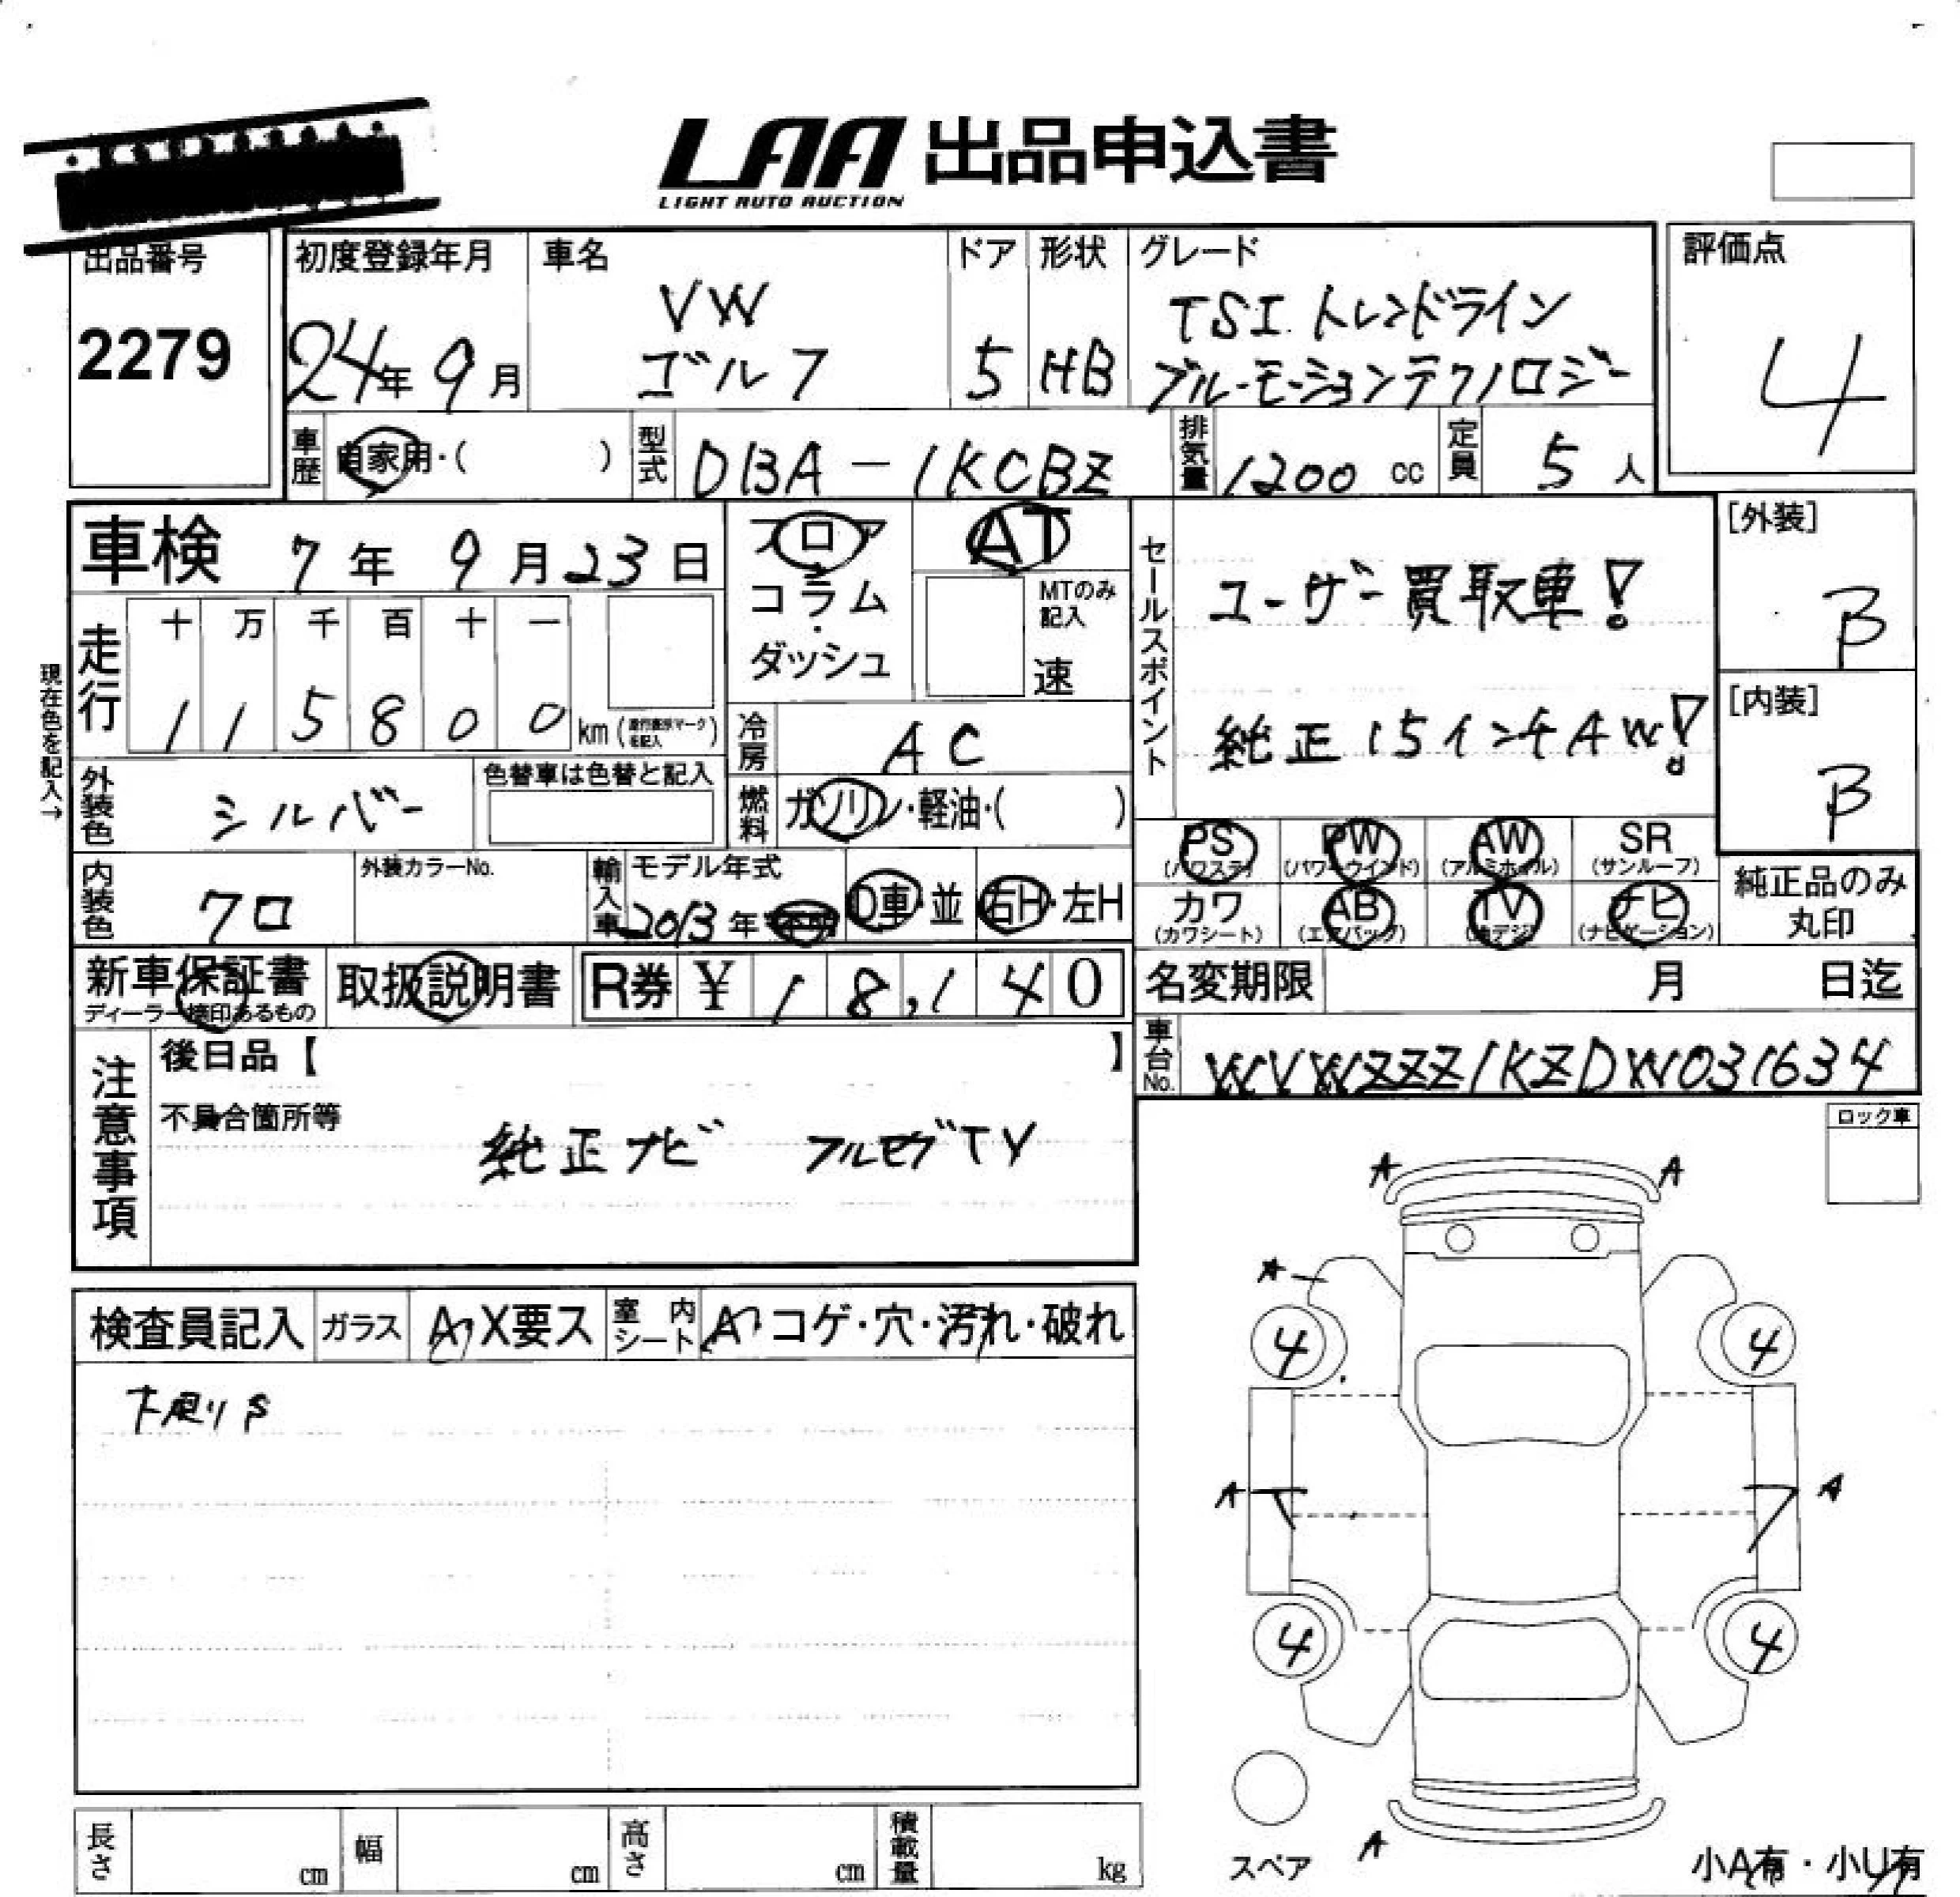 LAA 出品申込書
LIGHT AUTO AUCTION
出品番号
2279
初度登録年月
24年 9月
車名
VW
ゴルフ
ドア
5
形状
HB
グレード
TSI トレンドライン
ブルーモーションテクノロジー
評価点
4
車歴
自家用・( )
型式
DBA-1KCBZ
排気量
1200 cc
定員
5 人
車検 7年 9月 23日
フロア
コラム
・
ダッシュ
AT
MTのみ
記入
速
セールスポイント
ユーザー買取車!
純正15インチAW!
[外装]
B
[内装]
B
現在色を記入→
走行
十 万 千 百 十 一
1 1 5 8 0 0 km
冷房
AC
燃料
ガソリン・軽油・( )
外装色
シルバー
色替車は色替と記入
内装色
クロ
外装カラーNo.
輸入車
モデル年式
2013年
D車・並
右H・左H
PS
(パワステ)
PW
(パワーウインド)
AW
(アルミホイル)
SR
(サンルーフ)
カワ
(カワシート)
AB
(エアバッグ)
TV
(地デジ)
ナビ
(ナビゲーション)
純正品のみ
丸印
新車保証書
ディーラー捺印あるもの
取扱説明書
R券 ¥ 1 8,1 4 0
名変期限 月 日迄
車台No.
WVWZZZ1KZDW031634
注意事項
後日品【 】
不具合箇所等
純正ナビ フルセグTV
ロック車
検査員記入
ガラス
A・X要ス
室内
シート
A・コゲ・穴・汚れ・破れ
A A
A
4 4
A A
4 4
スペア
A
小A有・小U有
長さ cm
幅 cm
高さ cm
積載量 kg